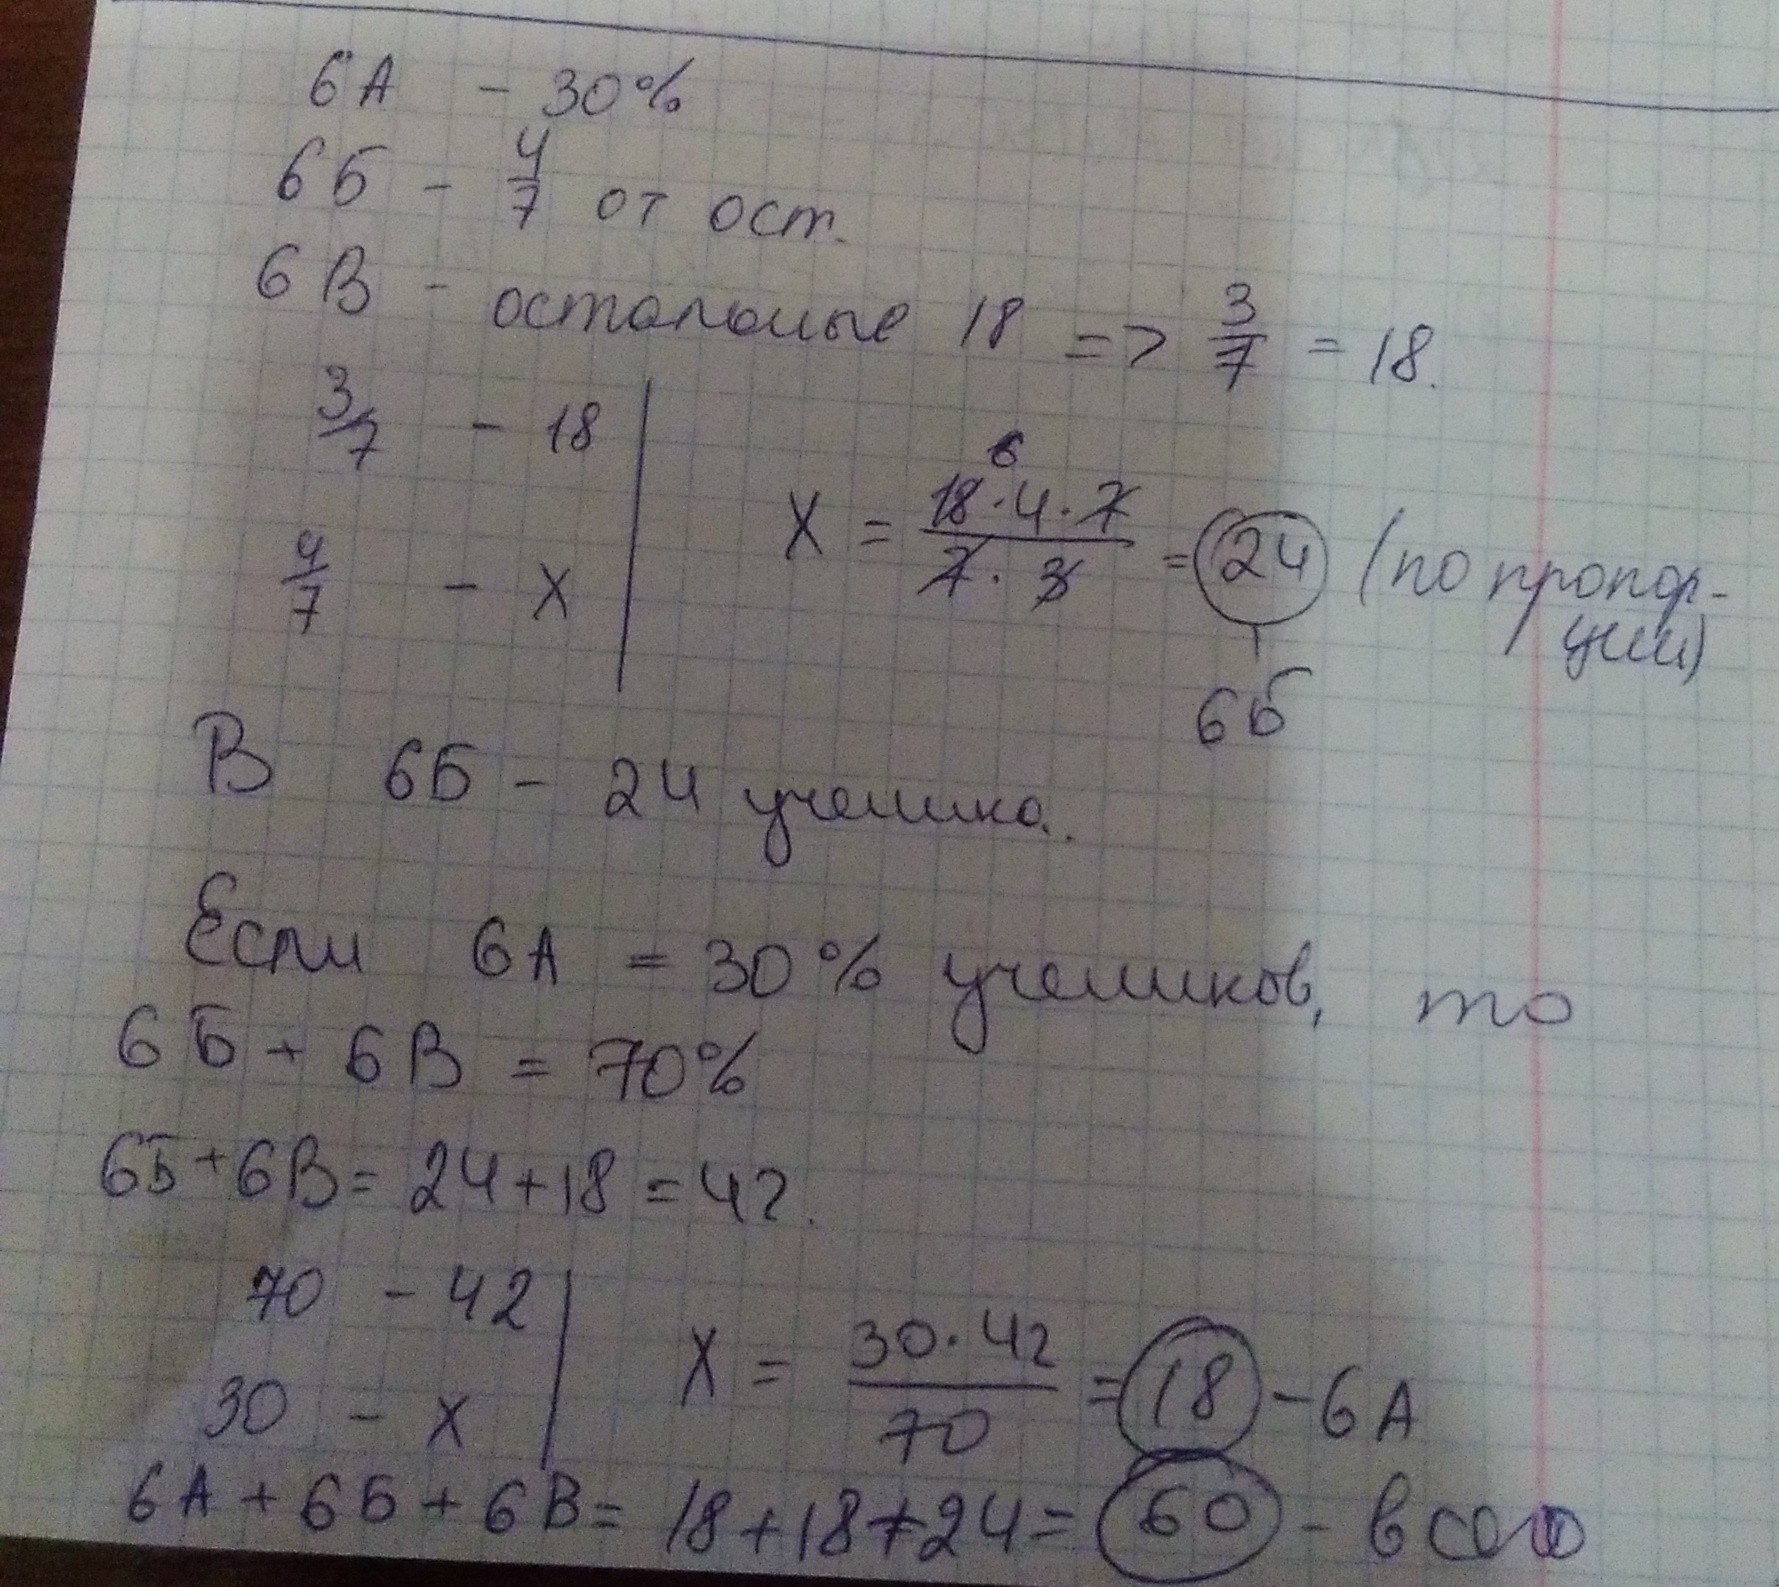 6А - 30%
6Б - 4/7 от ост.
6В - остальные 18 => 3/7 = 18.
3/7 - 18
4/7 - x
X = 18·4·7 / 7·3 = 24 (по пропор-
ции)
6
6Б
В 6Б - 24 ученика.
Если 6А = 30% учеников, то
6Б + 6В = 70%
6Б + 6В = 24 + 18 = 42.
70 - 42
30 - x
X = 30·42 / 70 = 18 - 6А
6А + 6Б + 6В = 18 + 18 + 24 = 60 - всего